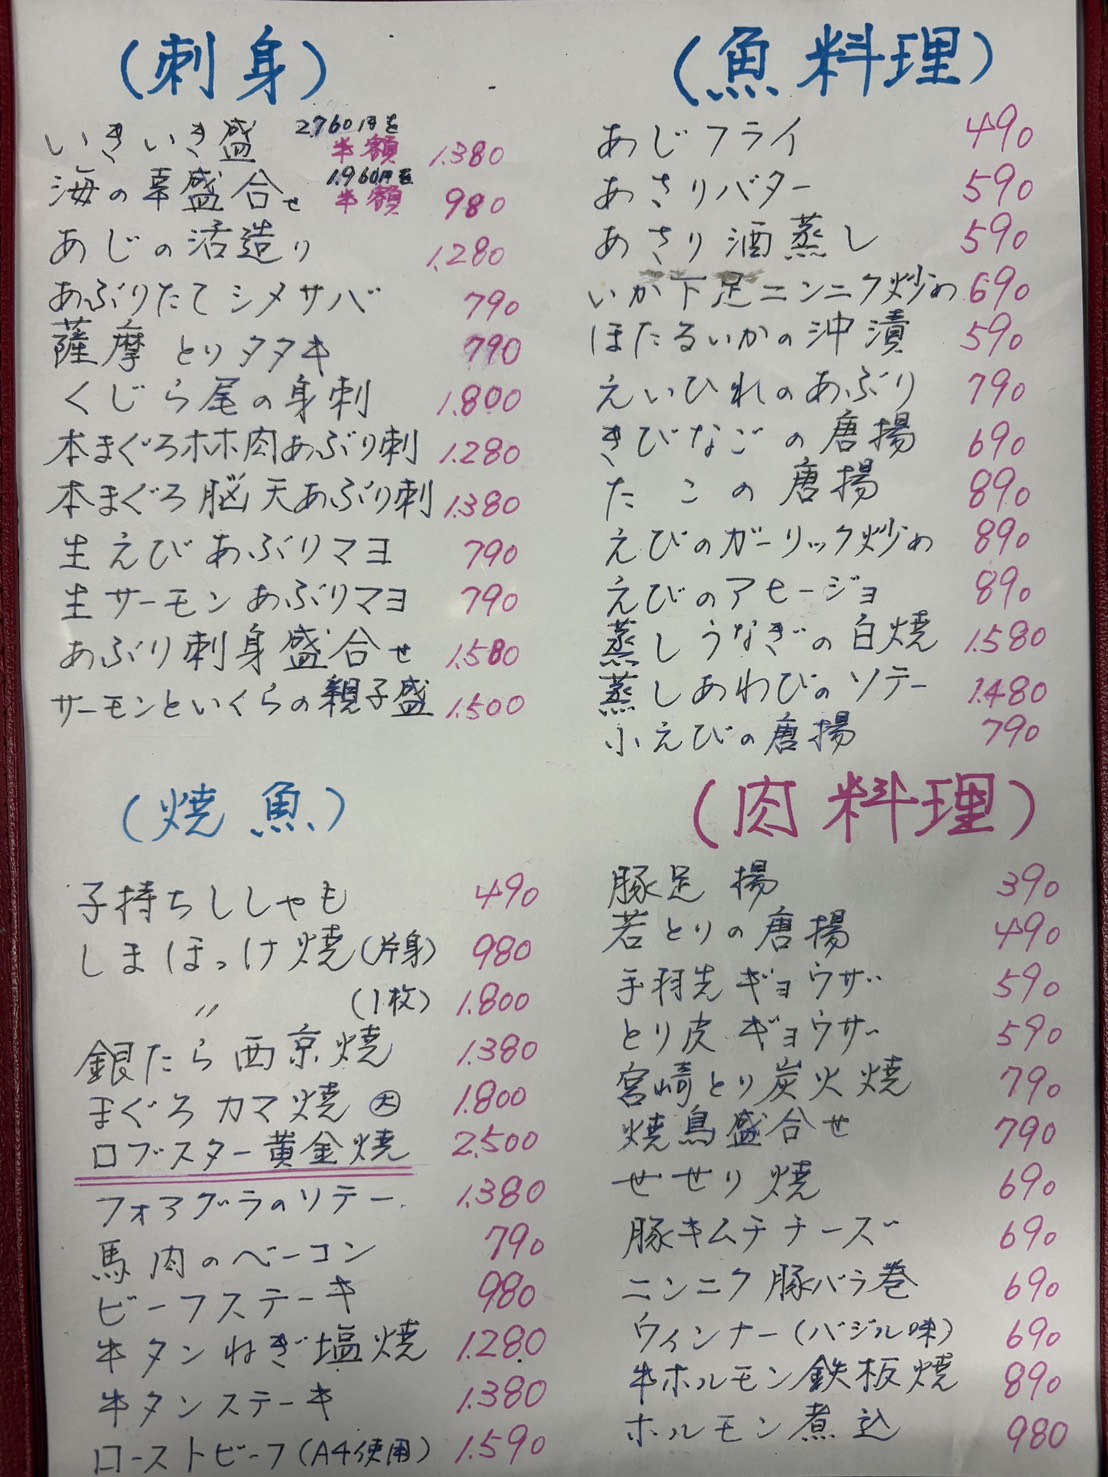 (刺身)
いきいき盛 2.760円を半額 1.380
海の幸盛合せ 1.960円を半額 980
あじの活造り 1.280
あぶりたてシメサバ 790
薩摩とりタタキ 790
くじら尾の身刺 1.800
本まぐろホホ肉あぶり刺 1.280
本まぐろ脳天あぶり刺 1.380
生えびあぶりマヨ 790
生サーモンあぶりマヨ 790
あぶり刺身盛合せ 1.580
サーモンといくらの親子盛 1.500
(焼魚)
子持ちししゃも 490
しまほっけ焼(片身) 980
〃 (1枚) 1.800
銀たら西京焼 1.380
まぐろカマ焼 大 1.800
ロブスター黄金焼 2.500
フォアグラのソテー 1.380
馬肉のベーコン 790
ビーフステーキ 980
牛タンねぎ塩焼 1.280
牛タンステーキ 1.380
ローストビーフ(A4使用) 1.590
(魚料理)
あじフライ 490
あさりバター 590
あさり酒蒸し 590
いか下足ニンニク炒め 690
ほたるいかの沖漬 590
えいひれのあぶり 790
きびなごの唐揚 690
たこの唐揚 890
えびのガーリック炒め 890
えびのアヒージョ 890
蒸しうなぎの白焼 1.580
蒸しあわびのソテー 1.480
小えびの唐揚 790
(肉料理)
豚足揚 390
若とりの唐揚 490
手羽先ギョウザ 590
とり皮ギョウザ 590
宮崎とり炭火焼 790
焼鳥盛合せ 790
せせり焼 690
豚キムチチーズ 690
ニンニク豚バラ巻 690
ウィンナー(バジル味) 690
牛ホルモン鉄板焼 890
ホルモン煮込 980